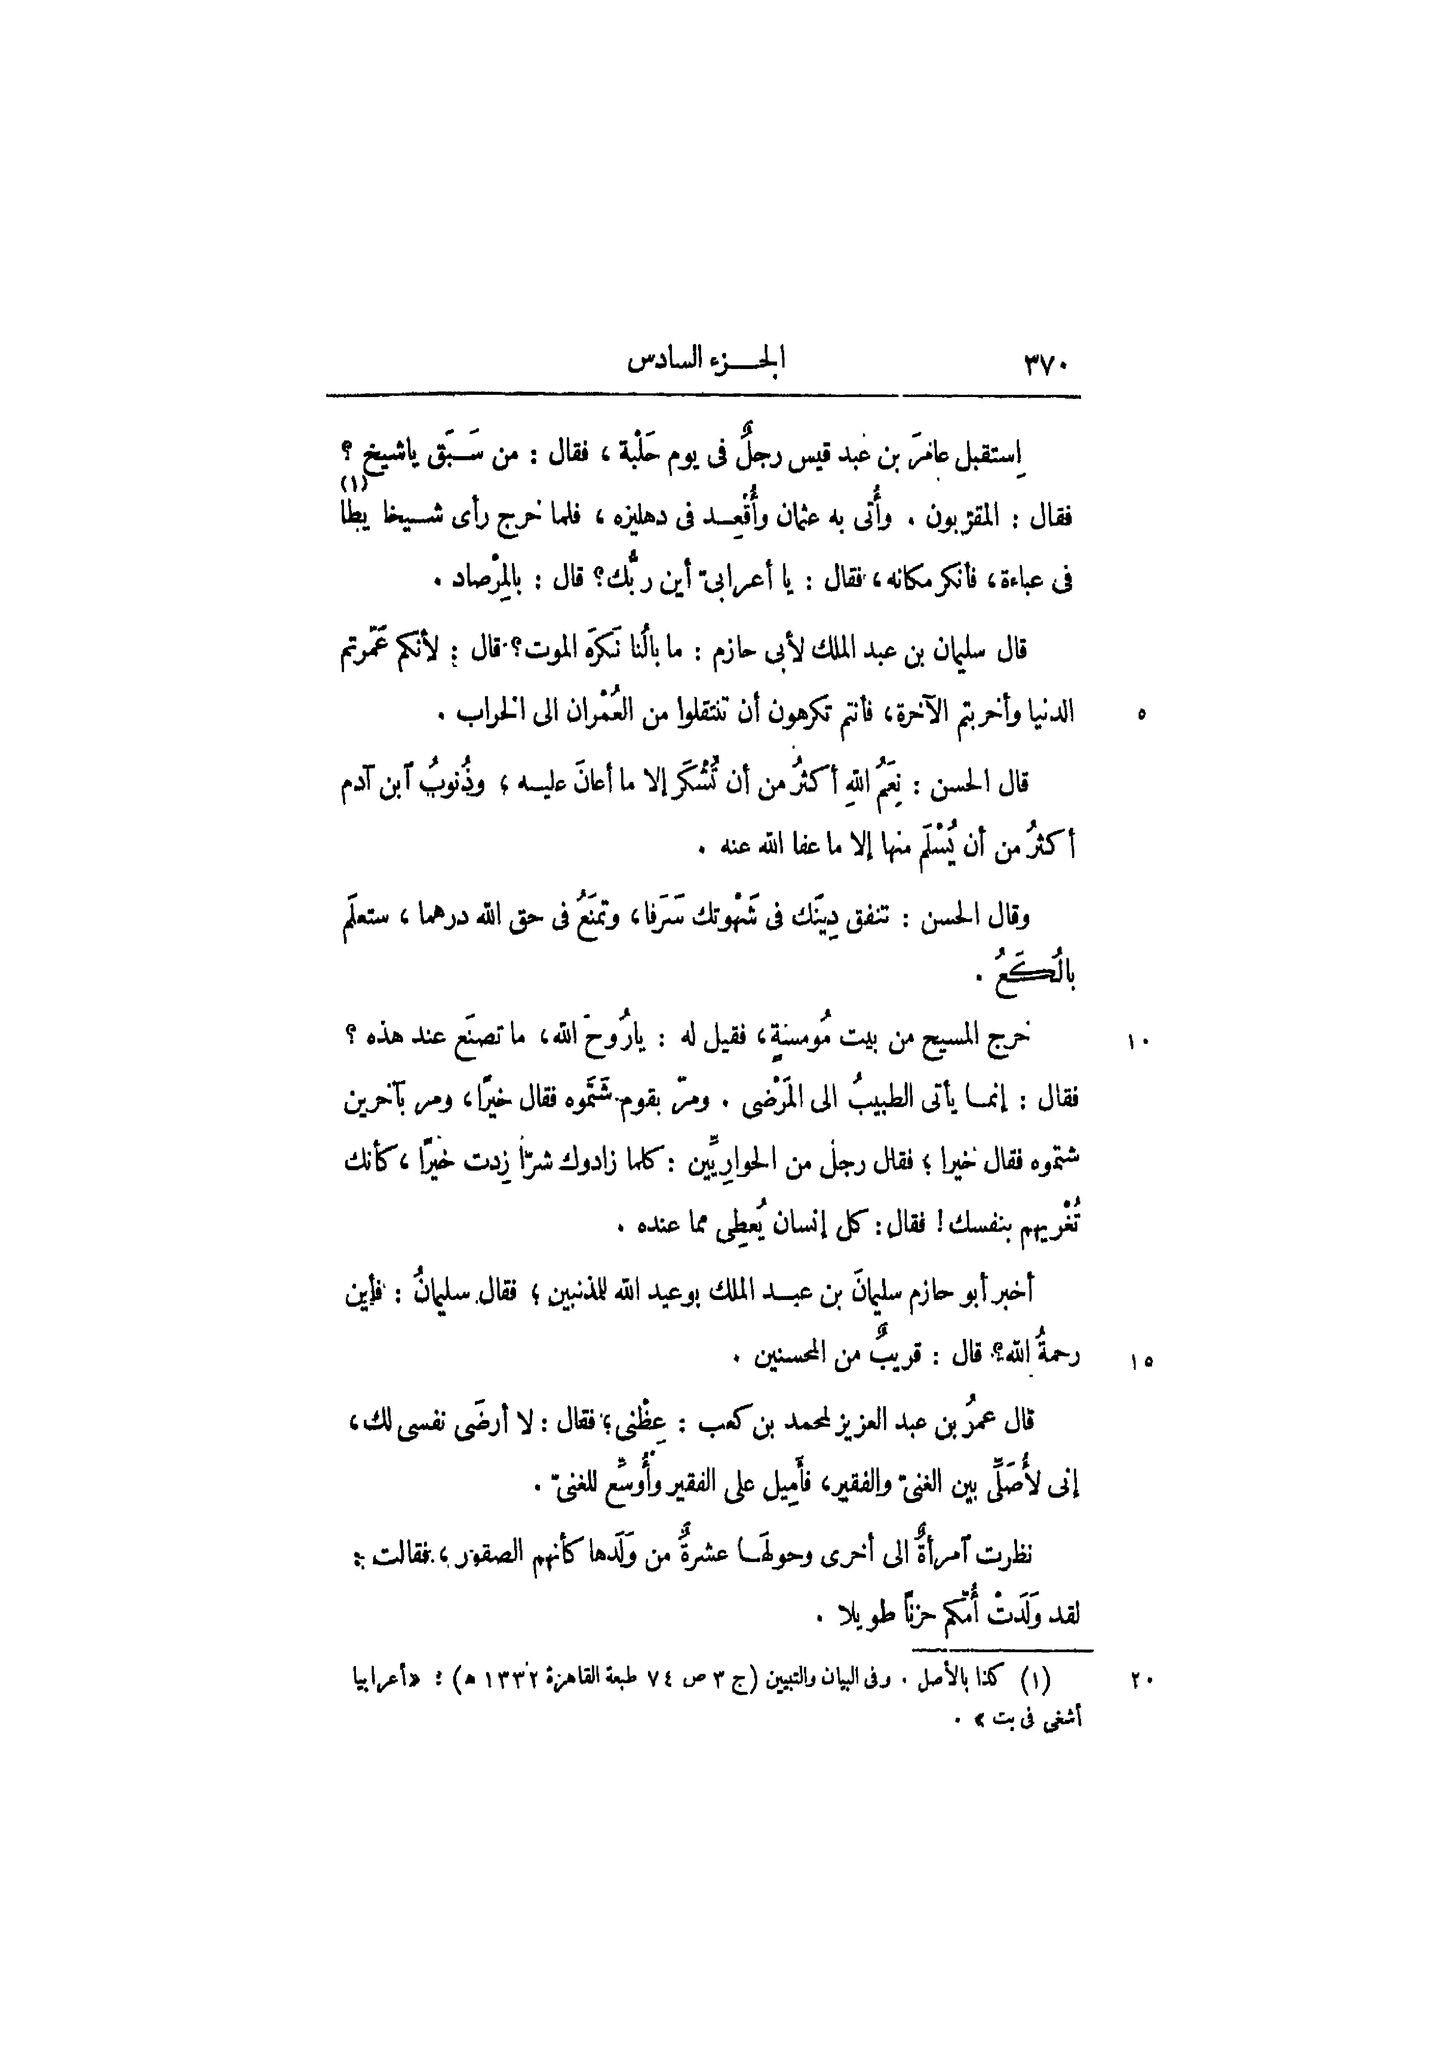 ٣٧٠
الجزء السادس
إستقبل عامرَ بن عبد قيس رجلٌ فى يوم حَلْبة، فقال : من سَبَق ياشيخ ؟
فقال : المقرّبون . وأُتى به عثمان وأُقْعِد فى دهليزه، فلما خرج رأى شيخا يطا (١)
فى عباءة، فأنكر مكانه، فقال : يا أعرابىّ أين ربُّك؟ قال : بالمِرْصاد .
قال سليمان بن عبد الملك لأبى حازم : ما بالُنا نَكرَه الموت؟ قال : لأنكم عَمّرتم
٥ الدنيا وأخربتم الآخرة، فأنتم تكرهون أن تنتقلوا من العُمْران الى الخراب .
قال الحسن : نِعَمُ اللهِ أكثرُ من أن تُشْكَر إلا ما أعانَ عليه ؛ وذُنوبُ آبن آدم
أكثرُ من أن يُسْلَم منها إلا ما عفا الله عنه .
وقال الحسن : تنفق دِينَك فى شَهْوتك سَرَفا، وتمنَعُ فى حق الله درهما، ستعلَم
يالُكَعُ .
١٠ خرج المسيح من بيت مُومسةٍ، فقيل له : يارُوحَ الله، ما تصنَع عند هذه ؟
فقال : إنما يأتى الطبيبُ الى المَرْضى . ومرّ بقوم شَتَموه فقال خيرًا، ومر بآخرين
شتموه فقال خيرا ؛ فقال رجل من الحوارِيِّين : كلما زادوك شرّا زِدت خيرًا، كأنك
تُغْريهم بنفسك! فقال: كل إنسان يُعطِى مما عنده .
أخبر أبو حازم سليمانَ بن عبد الملك بوعيد الله للمذنبين ؛ فقال سليمانُ : فأين
١٥ رحمةُ الله؟ قال : قريبٌ من المحسنين .
قال عمرُ بن عبد العزيز لمحمد بن كعب : عِظْنى؛ فقال : لا أرضَى نفسى لك،
إنى لأُصَلِّى بين الغنىّ والفقير، فأَمِيل على الفقير وأُوسِّع للغنىّ .
نظرت آمرأةٌ الى أخرى وحولهَا عشرةٌ من وَلَدها كأنهم الصقور، فقالت :
لقد وَلَدَتْ أُمّكم حزنًا طويلا .
٢٠ (١) كذا بالأصل . وفى البيان والتبيين (ج ٣ ص ٧٤ طبعة القاهرة ١٣٣٢ ه) : «أعرابيا
أشغى فى بت» .